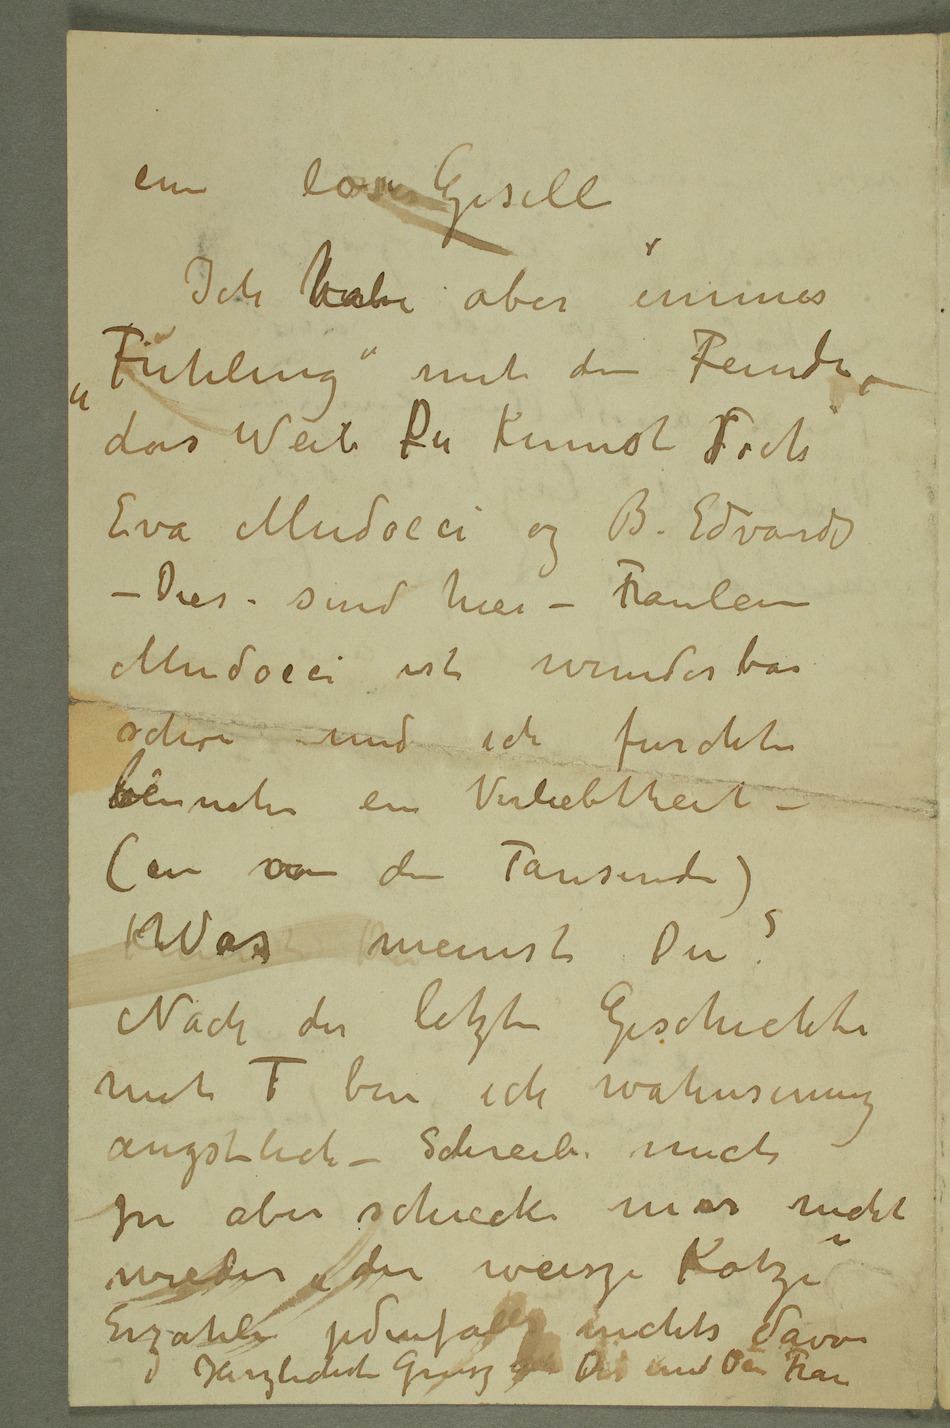 ein loser Gesell
Ich habe aber immer
„Fühling“ mit dem Feinde,
das Weib Du Kennst Doch
Eva Mudocci og B. Edvards
– Dies. sind hier – Fraulein
Mudocci ist wunderbar
schön und ich furchte
beinahe ein Verliebtheit –
(ein von den Tausende)
Was meinst Du?
Nach der letzte Geschichte
mit T bin ich wahnsinnig
angstlich – Schreib mich
zu aber schicke mir nicht
wieder „die weisze Katze“
Erzähle jedenfalls nichts davon
Herzlichste Grusz Dir und Dein Frau